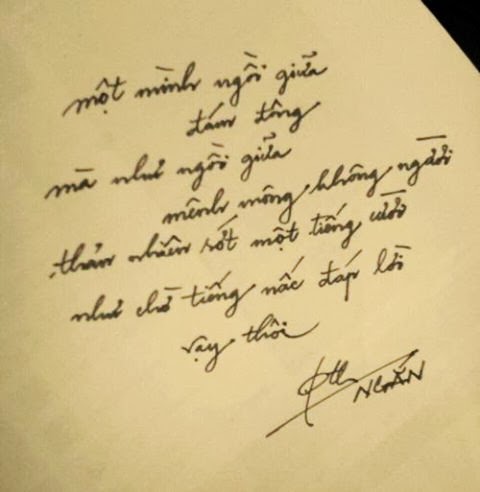 một mình ngồi giữa
đám đông
mà như ngồi giữa
mênh mông không người
thản nhiên rót một tiếng cười
như chờ tiếng nấc đáp lời
vậy thôi
NHÂN